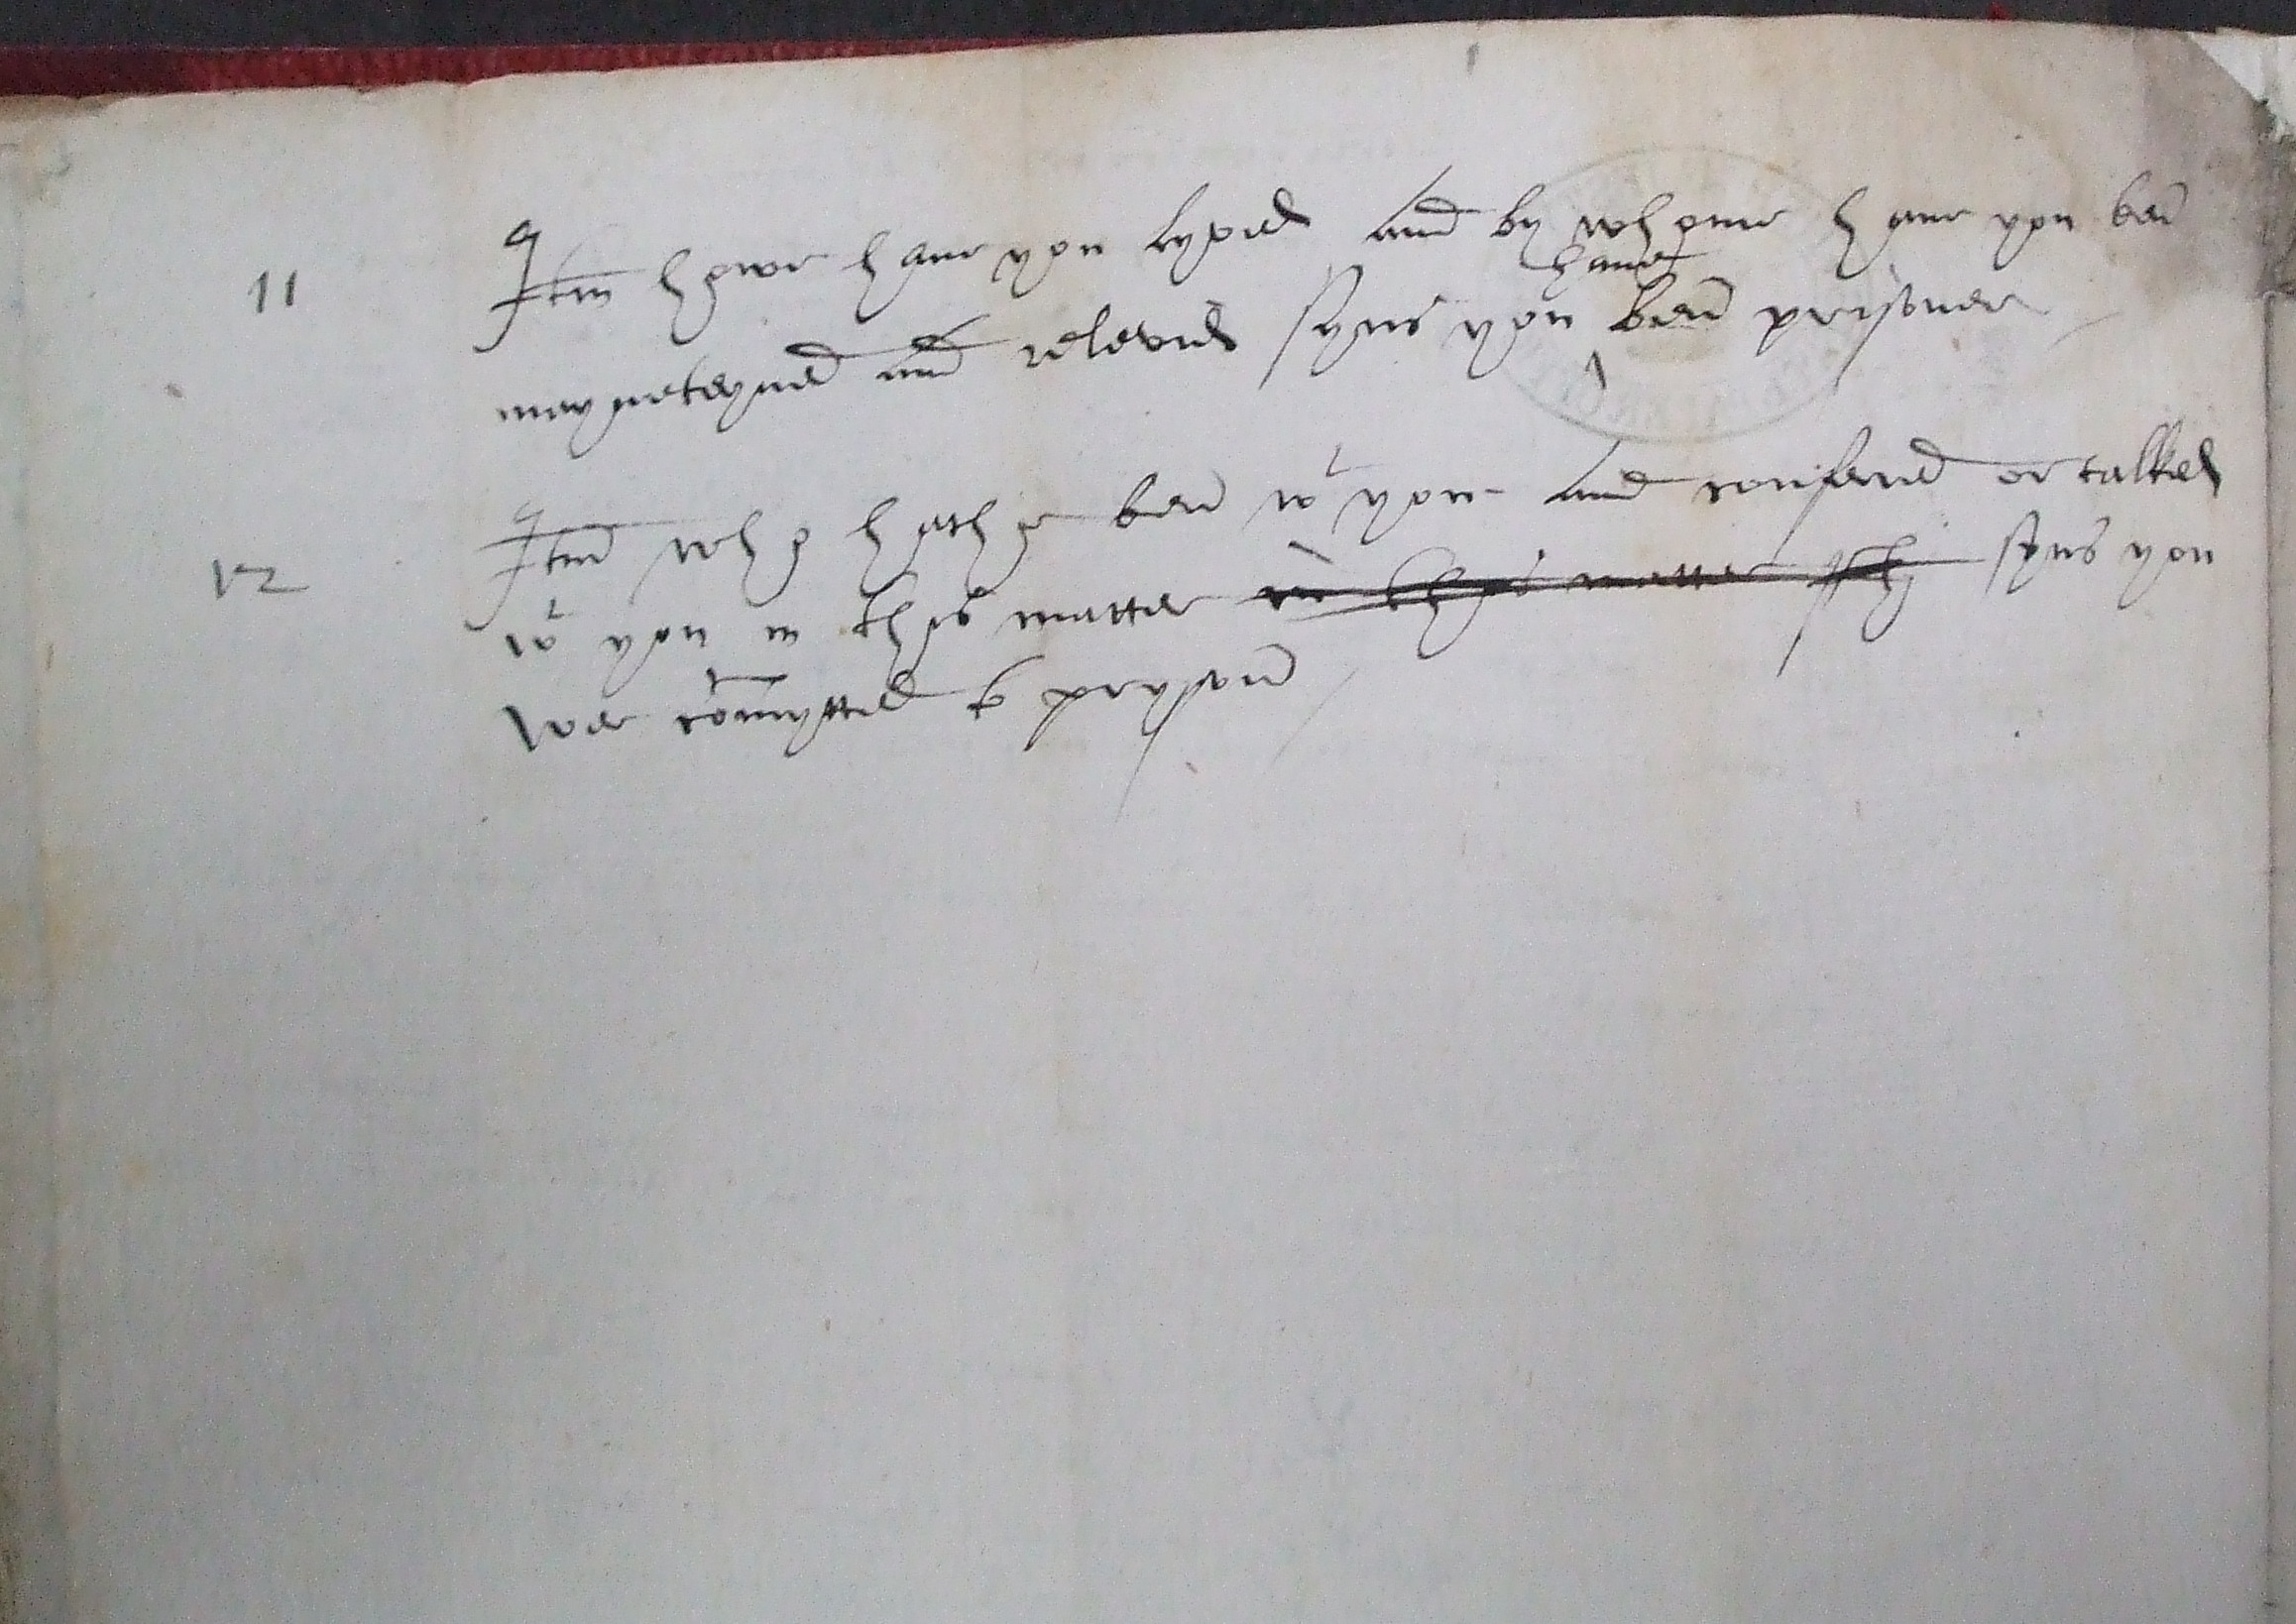 11 Itm howe haue you lyved and by whome haue you ben
haue
mayneteyned and releved syns you ben prisoner
12 Itm who hathe ben wt you and conferred or talked
wt you in this matter in this matter syns you
wer comytted to pryson